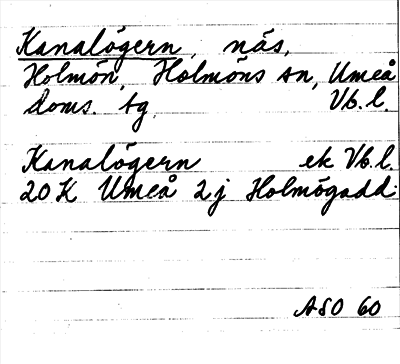 Kanalögern, näs,
Holmön, Holmöns sn, Umeå
doms. tg, Vb. l.
Kanalögern ek Vb. l.
20 K Umeå 2 j Holmögadd
ASO 60